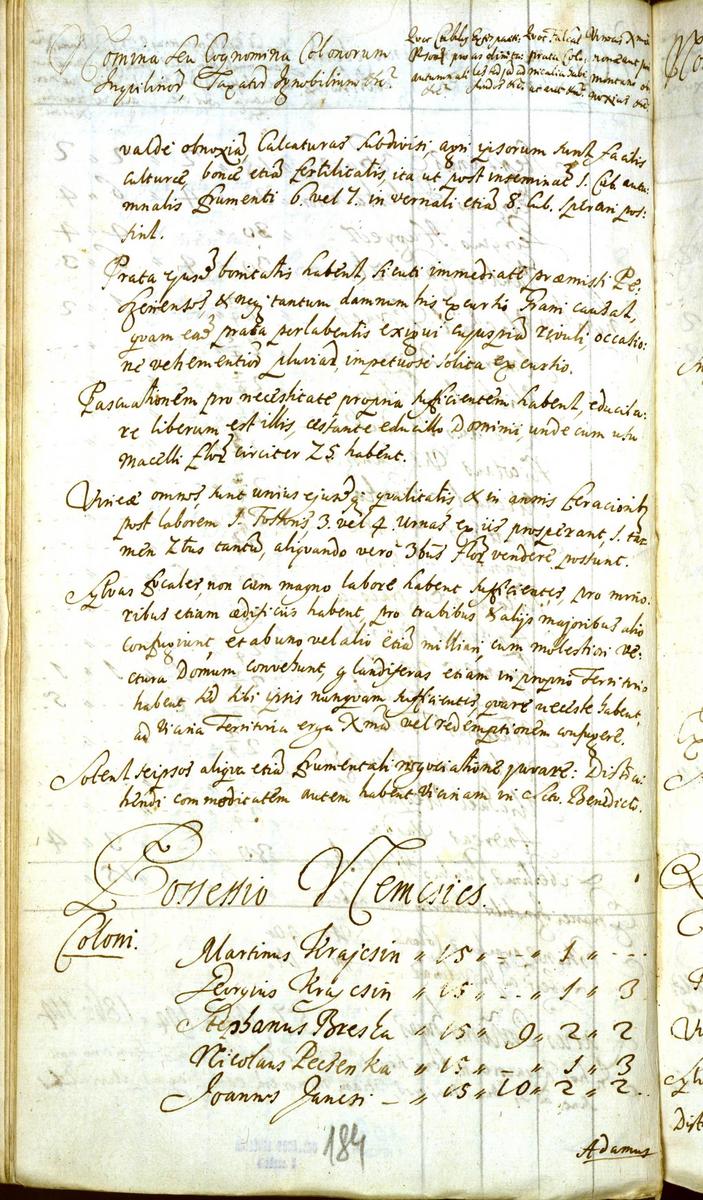 Nomina seu Cognomina Colonorum
Inquilinorũ, Taxator Ignobilium etc.
valde obnoxiã, Calcaturas subdivisi, agri ipsorum sunt facilis
culturæ, bonæ etiã fertilitatis, ita ut post inseminat 1. Cub. autu:
mnalis frumenti 6. vel 7. in vernali etiã 8. Cub. sperari pos:
sint.
Prata ejusd bonitatis habent, sicuti immediatè præmissi
& neq tantum damnum his excursio causat,
quam ead prata perlabentis exigui cujuspiã rivuli, occasio:
ne vehementior pluviarũ, impetuosè solita excursio.
Pascuationem pro necessitate propria sufficientem habent, educilla:
re liberum est illis, cessante educillo Dominii unde cum usu
macelli flor circiter 25 habent.
Vineæ omnes sunt unius ejusdq qualitatis & in annis feraciorib
post laborem 1. Fossoris, 3. vel 4 Urnas ex iis prosperant, 1. ta:
men 2bus tantũ, aliquando verò 3bus flor vendere possunt.
Sylvas focales, non cum magno labore habent sufficientes, pro mino:
ribus etiam ædificiis habent, pro trabibus & alijs majoribus aliò
confugiunt, et ab uno vel alio etiã milliari, cum molestiori ve:
ctura Domum convehunt, glandiferas etiam in proprio Territorio
habent sed sibi ipsis nunquam sufficientes, quare necesse habent,
ad vicina Territoria erga Xmã vel redemptionem confugere.
Solent seipsos aliqua etiã frumentali negociatione juvare: Distra:
hendi commoditatem autem habent vicinam in Scto. Benedicto.
Possessio Nemcsics.
Coloni.
Martinus Krajcsin " 15 " - " 1 " - -
Georgius Krajcsin " 15 " - " 1 " 3
Stephanus Breska " 15 " 9 " 2 " 2
Nicolaus Pecsenka " 15 " - " 1 " 3
Joannes Jancsi - " 15 " 10 " 2 " 2
184
Adamus